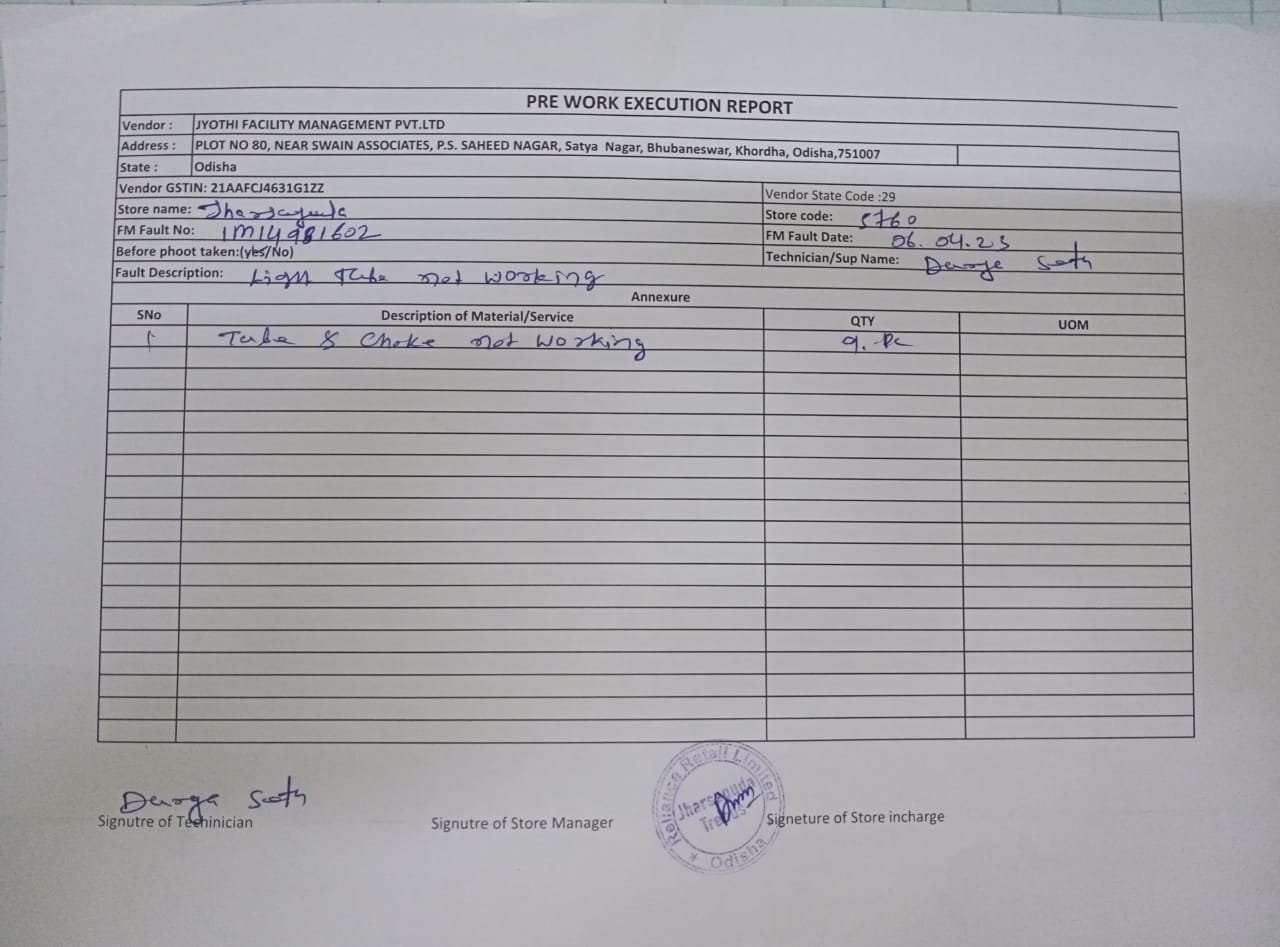 PRE WORK EXECUTION REPORT
Vendor : JYOTHI FACILITY MANAGEMENT PVT.LTD
Address : PLOT NO 80, NEAR SWAIN ASSOCIATES, P.S. SAHEED NAGAR, Satya Nagar, Bhubaneswar, Khordha, Odisha,751007
State : Odisha
Vendor GSTIN: 21AAFCJ4631G1ZZ Vendor State Code :29
Store name: Store code: 5760
FM Fault No: 1M14981602 FM Fault Date: 06.04.23
Before phoot taken:(yes/No) Technician/Sup Name:
Fault Description: Ligh Tube not working
Annexure
SNo Description of Material/Service QTY UOM
1 Tube & Choke not working 9. Pc
Signutre of Techinician Signutre of Store Manager Signeture of Store incharge
Reliance Retail Limited
Jharsuguda
Trends
* Odisha